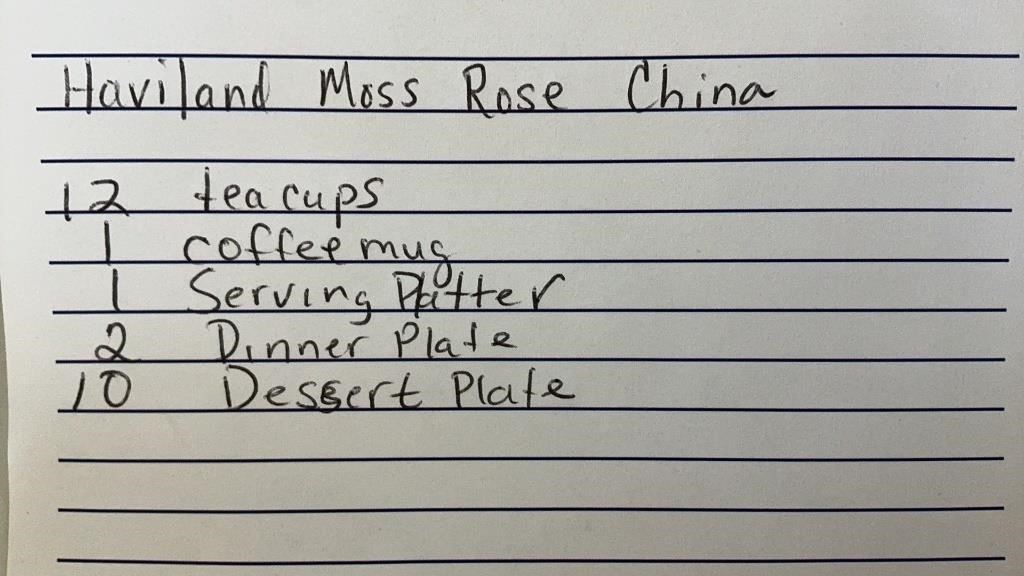 Haviland Moss Rose China
12 teacups
1 coffee mug
1 Serving Platter
2 Dinner Plate
10 Dessert Plate